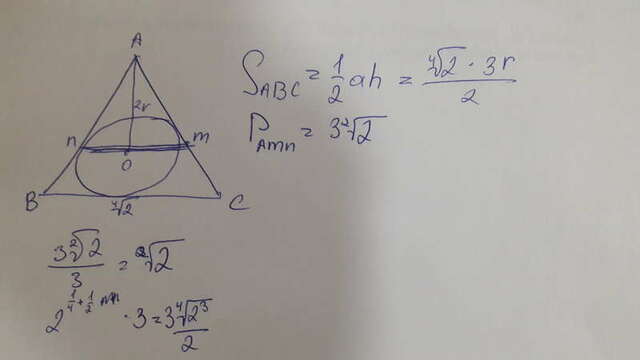 A
2r
n
m
O
B
⁴√2
C
S_ABC = 1/2 ah = (⁴√2 · 3r)/2
P_AMn = 3²√2
3²√2/3 = ²√2
2^(1/4 + 1/2) · 3 = 3⁴√2³/2